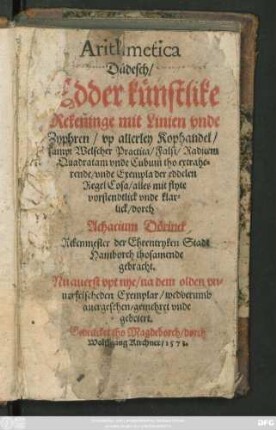 Arithmetica
Düdesch/
Edder künstlike
Rekeninge mit Linien vnde
Zyphren / vp allerley Kophandel/
sampt Welscher Practica/ Falsi/ Radicem
Quadratam vnde Cubicam tho extrahe-
rende/ vnde Exempla der eddelen
Regel Cosa/ alles mit flyte
vorstendtlick vnde klar-
lick/ dorch
Achatium Dörinck,
Rekenmeister der Ehrentryken Stadt
Hamborch thosamende
gebracht.
Nu auerst vpt nye/ na dem olden
Exemplar/ wedderumb
auergesehen/ gemehret vnde
gebetert.
Gedrücket tho Magdeborch/ dorch
Wolffgang Kirchner/ 1578.